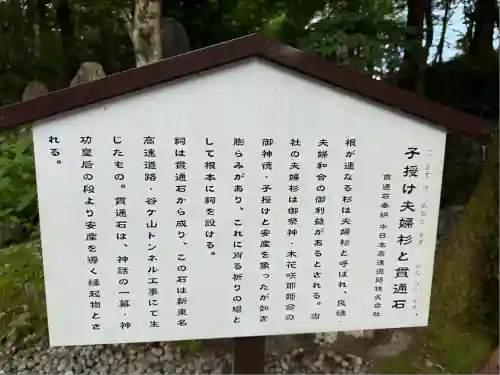 こさずけ めおとすぎ かんつうせき
子授け夫婦杉と貫通石
貫通石奉納 中日本高速道路株式会社
根が連なる杉は夫婦杉と呼ばれ、良縁・
夫婦和合の御利益があるとされる。当
社の夫婦杉は御祭神・木花咲耶姫命の
御神徳・子授けと安産を象ったが如き
膨らみがあり、これに宵る祈りの場と
して根本に祠を設ける。
祠は貫通石から成り、この石は新東名
高速道路・谷ケ山トンネル工事にて生
じたもの。貫通石は、神話の一幕・神
功皇后の段より安産を導く縁起物とさ
れる。